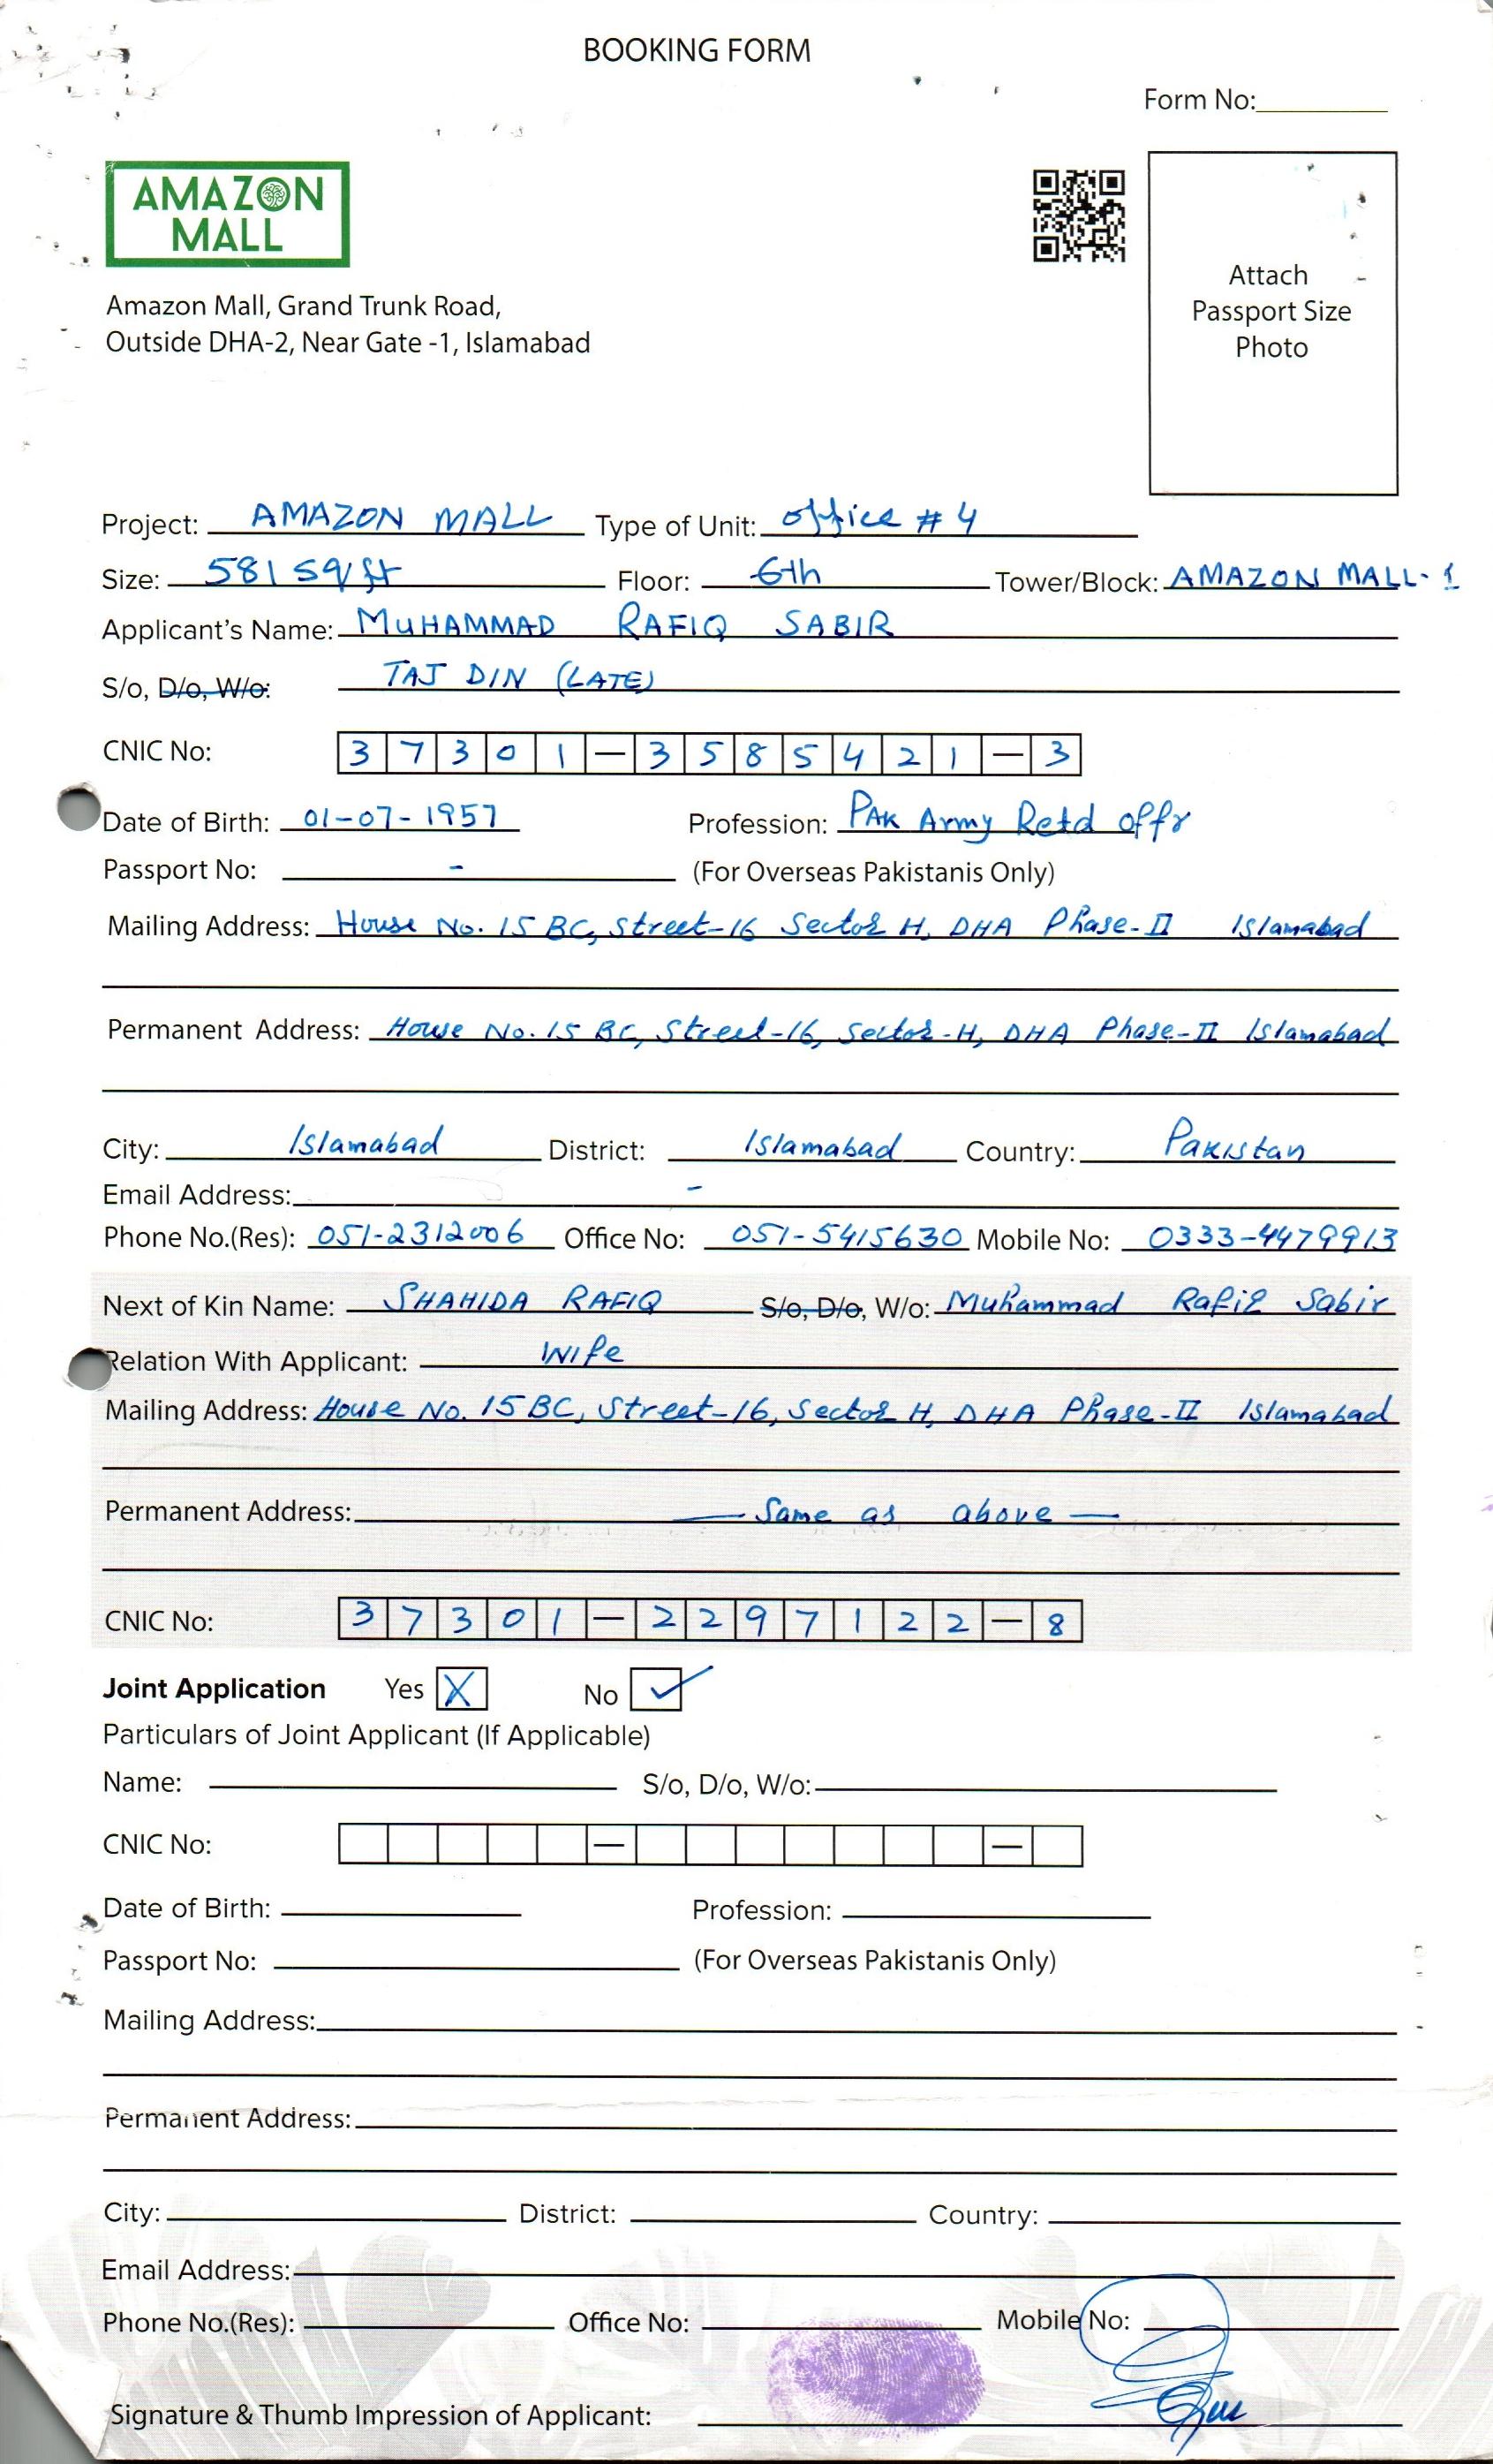 BOOKING FORM
Form No:
AMAZON
MALL
Attach
Passport Size
Photo
Amazon Mall, Grand Trunk Road,
Outside DHA-2, Near Gate -1, Islamabad
Project: AMAZON MALL Type of Unit: office # 4
Size: 581 sq/ft Floor: 6th Tower/Block: AMAZON MALL-1
Applicant's Name: MUHAMMAD RAFIQ SABIR
S/o, D/o, W/o: TAJ DIN (LATE)
CNIC No: 37301-3585421-3
Date of Birth: 01-07-1957 Profession: PAK Army Retd offr
Passport No: - (For Overseas Pakistanis Only)
Mailing Address: House No. 15 BC, Street-16 Sector H, DHA Phase-II Islamabad
Permanent Address: House No. 15 BC, Street-16, Sector-H, DHA Phase-II Islamabad
City: Islamabad District: Islamabad Country: Pakistan
Email Address: -
Phone No.(Res): 051-2312006 Office No: 051-5415630 Mobile No: 0333-4479913
Next of Kin Name: SHAHIDA RAFIQ S/o, D/o, W/o: Muhammad Rafiq Sabir
Relation With Applicant: Wife
Mailing Address: House No. 15 BC, Street-16, Sector H, DHA Phase-II Islamabad
Permanent Address: — Same as above —
CNIC No: 37301-2297122-8
Joint Application Yes X No ✓
Particulars of Joint Applicant (If Applicable)
Name: S/o, D/o, W/o:
CNIC No: — —
Date of Birth: Profession:
Passport No: (For Overseas Pakistanis Only)
Mailing Address:
Permanent Address:
City: District: Country:
Email Address:
Phone No.(Res): Office No: Mobile No:
Signature & Thumb Impression of Applicant: